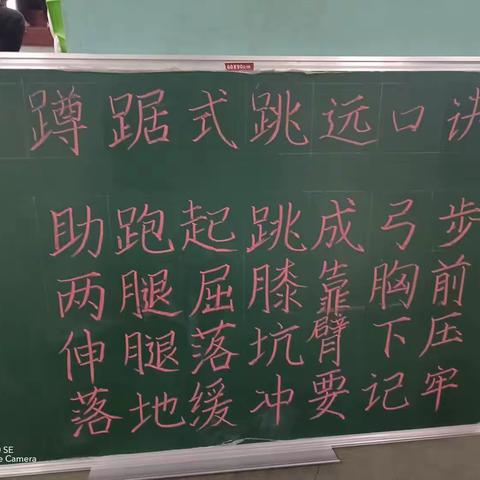 60X90cm
蹲踞式跳远口诀
助跑起跳成弓步
两腿屈膝靠胸前
伸腿落坑臂下压
落地缓冲要记牢
SE
Camera